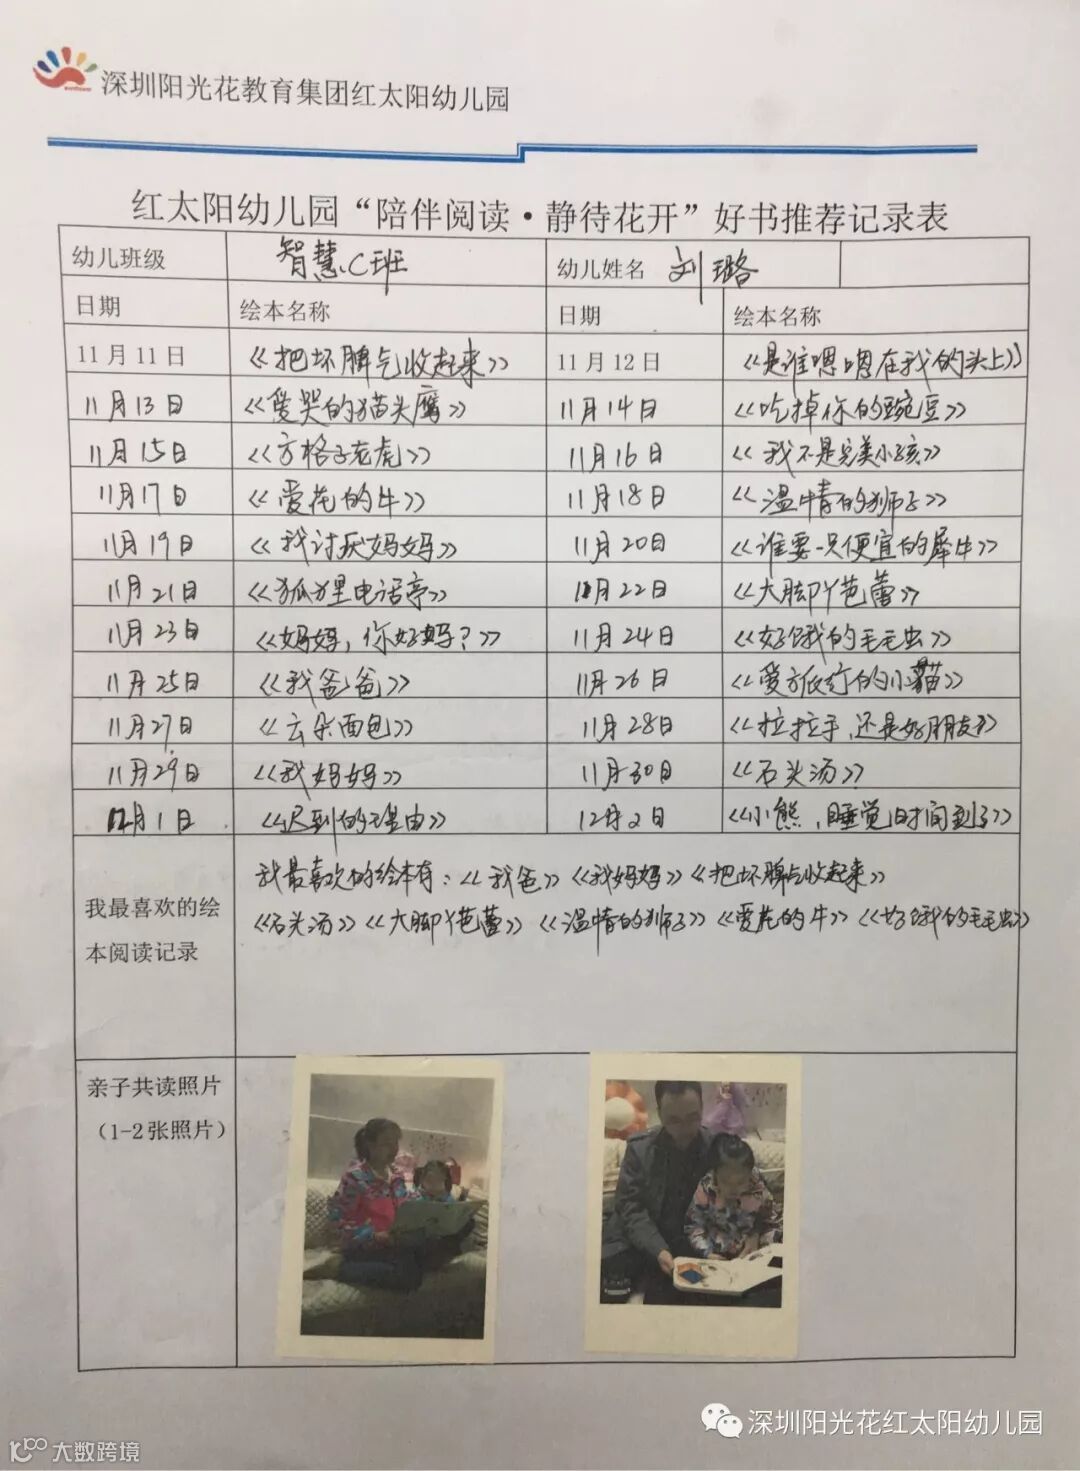 深圳阳光花教育集团红太阳幼儿园
红太阳幼儿园“陪伴阅读·静待花开”好书推荐记录表
幼儿班级 智慧C班 幼儿姓名 刘璐
日期 绘本名称 日期 绘本名称
11月11日 《把坏脾气收起来》 11月12日 《是谁嗯嗯在我的头上》
11月13日 《爱哭的猫头鹰》 11月14日 《吃掉你的豌豆》
11月15日 《方格子老虎》 11月16日 《我不是完美小孩》
11月17日 《爱花的牛》 11月18日 《温情的狮子》
11月19日 《我讨厌妈妈》 11月20日 《谁要一只便宜的犀牛》
11月21日 《狐狸电话亭》 11月22日 《大脚丫芭蕾》
11月23日 《妈妈，你好吗？》 11月24日 《好饿的毛毛虫》
11月25日 《我爸爸》 11月26日 《爱 的小猫》
11月27日 《云朵面包》 11月28日 《拉拉手，还是好朋友》
11月29日 《我妈妈》 11月30日 《石头汤》
12月1日 《迟到的理由》 12月2日 《小熊，睡觉时间到了》
我最喜欢的绘本阅读记录
我最喜欢的绘本有：《我爸》《我妈妈》《把坏脾气收起来》
《石头汤》《大脚丫芭蕾》《温情的狮子》《爱花的牛》《好饿的毛毛虫》
亲子共读照片
（1-2张照片）
深圳阳光花红太阳幼儿园
大数跨境